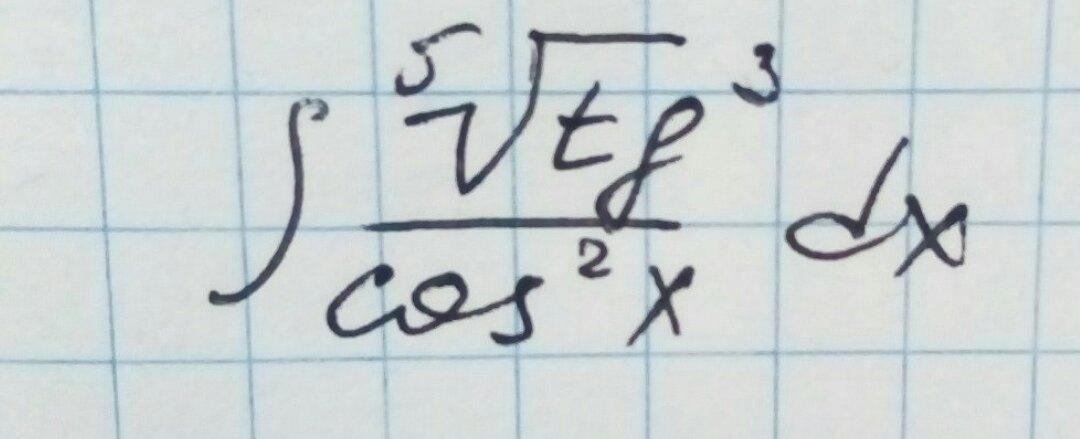 ∫ ⁵√tg ³ / cos²x dx